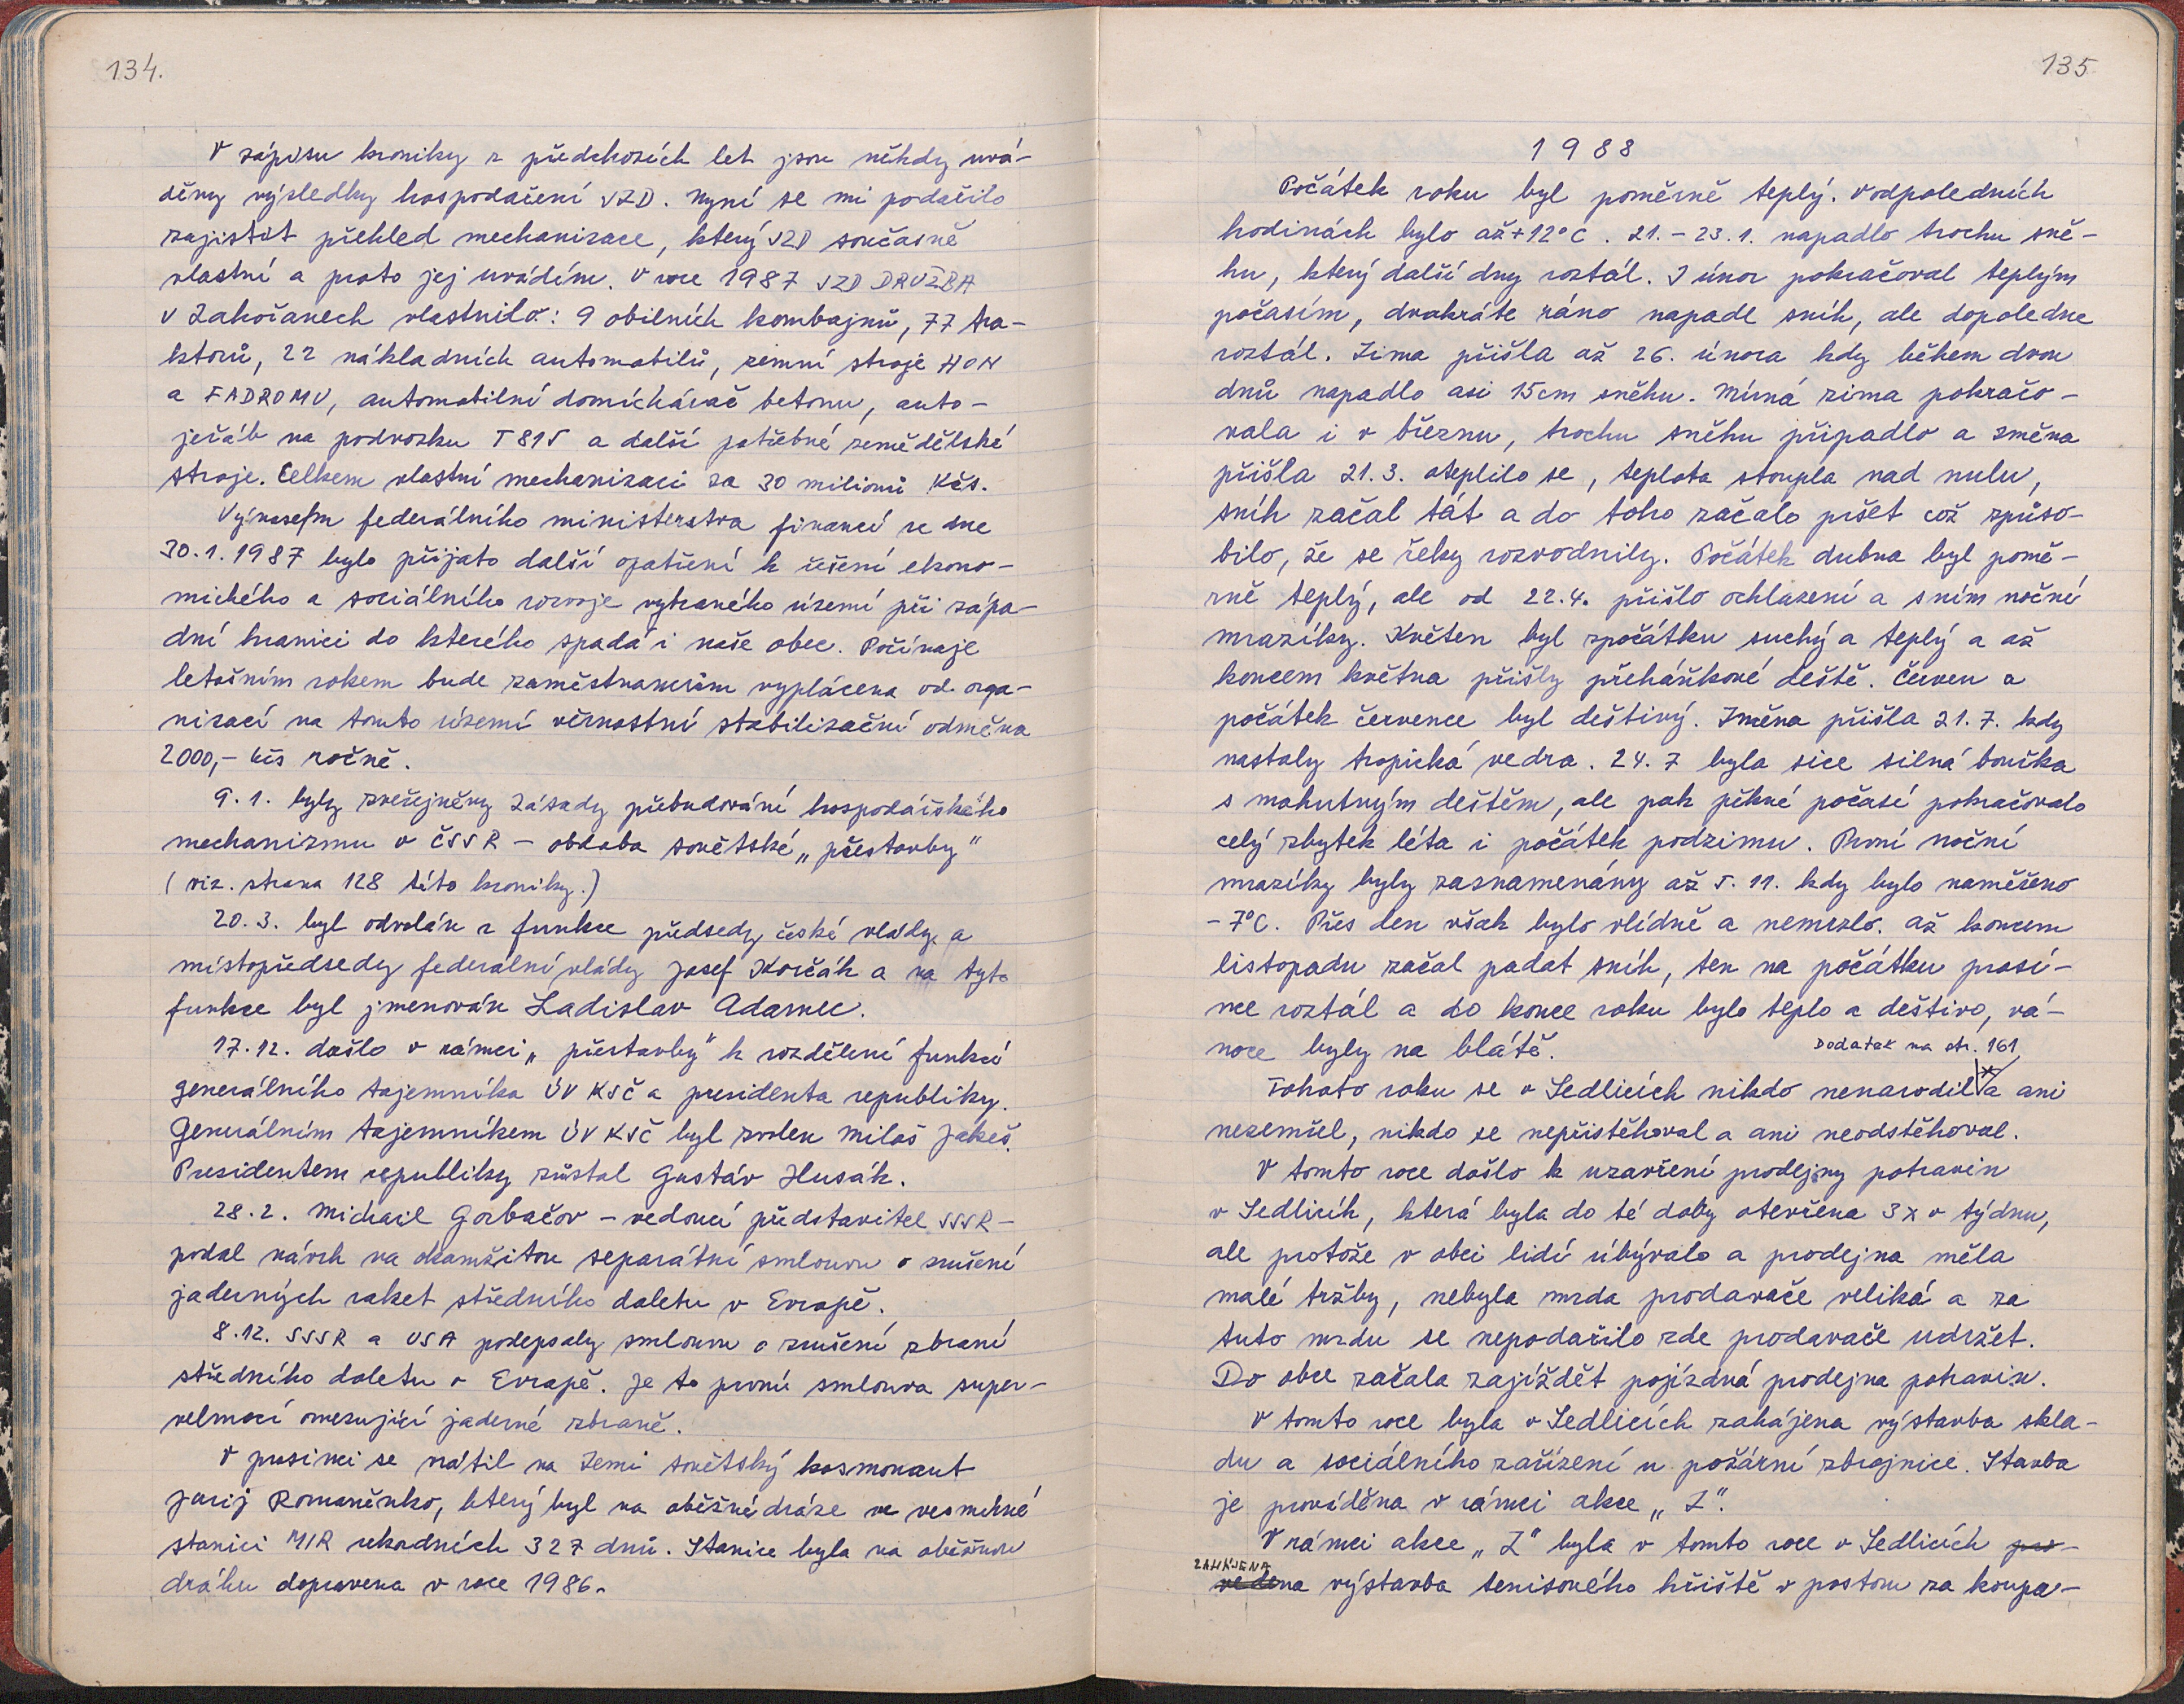 134.
V zápisu kroniky z předchozích let jsou někdy uvá-
děny výsledky hospodaření JZD. Nyní se mi podařilo
zajistit přehled mechanizace, který JZD současně
vlastní a proto jej uvádím. V roce 1987 JZD DRUŽBA
v Zahořanech vlastnilo: 9 obilních kombajnů, 77 tra-
ktorů, 22 nákladních automobilů, zemní stroje HON
a FADROMU, automobilní domíchávač betonu, auto-
jeřáb na podvozku T 815 a další potřebné zemědělské
stroje. Celkem vlastní mechanizaci za 30 milionů Kčs.
Výnosem federálního ministerstva financí ze dne
30.1.1987 bylo přijato další opatření k řešení ekono-
mického a sociálního rozvoje vybraného území při zápa-
dní hranici do kterého spadá i naše obec. Počínaje
letošním rokem bude zaměstnancům vyplácena od orga-
nizací na tomto území věrnostní stabilizační odměna
2000,- Kčs ročně.
9.1. byly zveřejněny Zásady přebudování hospodářského
mechanizmu v ČSSR - obdoba sovětské „přestavby“
(viz. strana 128 této kroniky.)
20.3. byl odvolán z funkce předsedy české vlády a
místopředsedy federální vlády Josef Korčák a na tyto
funkce byl jmenován Ladislav Adamec.
17.12. došlo v rámci „přestavby“ k rozdělení funkcí
generálního tajemníka ÚV KSČ a presidenta republiky.
Generálním tajemníkem ÚV KSČ byl zvolen Miloš Jakeš.
Presidentem republiky zůstal Gustáv Husák.
28.2. Michail Gorbačov - vedoucí představitel SSSR -
podal návrh na okamžitou separátní smlouvu o zrušení
jaderných raket středního doletu v Evropě.
8.12. SSSR a USA podepsaly smlouvu o zrušení zbraní
středního doletu v Evropě. Je to první smlouva super-
velmocí omezující jaderné zbraně.
V prosinci se vrátil na Zemi sovětský kosmonaut
Jurij Romaněnko, který byl na oběžné dráze ve vesmírné
stanici MIR rekordních 327 dnů. Stanice byla na oběžnou
dráhu dopravena v roce 1986.
135
1988
Počátek roku byl poměrně teplý. V odpoledních
hodinách bylo až +12°C. 21.-23.1. napadlo trochu sně-
hu, který další dny roztál. I únor pokračoval teplým
počasím, dvakráte ráno napadl sníh, ale dopoledne
roztál. Zima přišla až 26. února kdy během dvou
dnů napadlo asi 15cm sněhu. Mírná zima pokračo-
vala i v březnu, trochu sněhu připadlo a změna
přišla 21.3. oteplilo se, teplota stoupla nad nulu,
sníh začal tát a do toho začalo pršet což způso-
bilo, že se řeky rozvodnily. Počátek dubna byl pomě-
rně teplý, ale od 22.4. přišlo ochlazení a s ním noční
mrazíky. Květen byl zpočátku suchý a teplý a až
koncem května přišly přeháňkové deště. Červen a
počátek července byl deštivý. Změna přišla 21.7. kdy
nastaly tropická vedra. 24.7 byla sice silná bouřka
s mohutným deštěm, ale pak pěkné počasí pokračovalo
celý zbytek léta i počátek podzimu. První noční
mrazíky byly zaznamenány až 5.11. kdy bylo naměřeno
-7°C. Přes den však bylo vlídně a nemrzlo. Až koncem
listopadu začal padat sníh, ten na počátku prosi-
nce roztál a do konce roku bylo teplo a deštivo, vá-
noce byly na blátě.
Dodatek na str. 161
Tohoto roku se v Sedlicích nikdo nenarodil a ani
nezemřel, nikdo se nepřistěhoval a ani neodstěhoval.
V tomto roce došlo k uzavření prodejny potravin
v Sedlicích, která byla do té doby otevřena 3x v týdnu,
ale protože v obci lidí úbývalo a prodejna měla
malé tržby, nebyla mzda prodavače veliká a za
tuto mzdu se nepodařilo zde prodavače udržet.
Do obce začala zajíždět pojízdná prodejna potravin.
V tomto roce byla v Sedlicích zahájena výstavba skla-
du a sociálního zařízení u požární zbrojnice. Stavba
je prováděna v rámci akce „Z“.
V rámci akce „Z“ byla v tomto roce v Sedlicích pro-
ZAHÁJENA
vedena výstavba tenisového hřiště v prostoru za koupa-